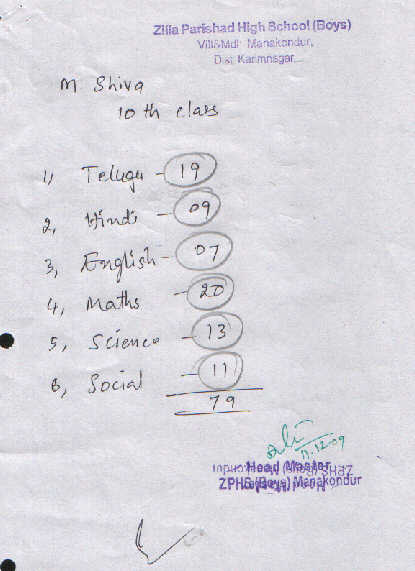 Zilla Parishad High School (Boys)
Vill&Mdl: Manakondur,
Dist. Karimnagar.
M Shiva
10 th class
1, Telugu - 19
2, Hindi - 09
3, English - 07
4, Maths - 20
5, Science - 13
6, Social - 11
79
11.12.09
Head Master
ZPHS (Boys) Manakondur